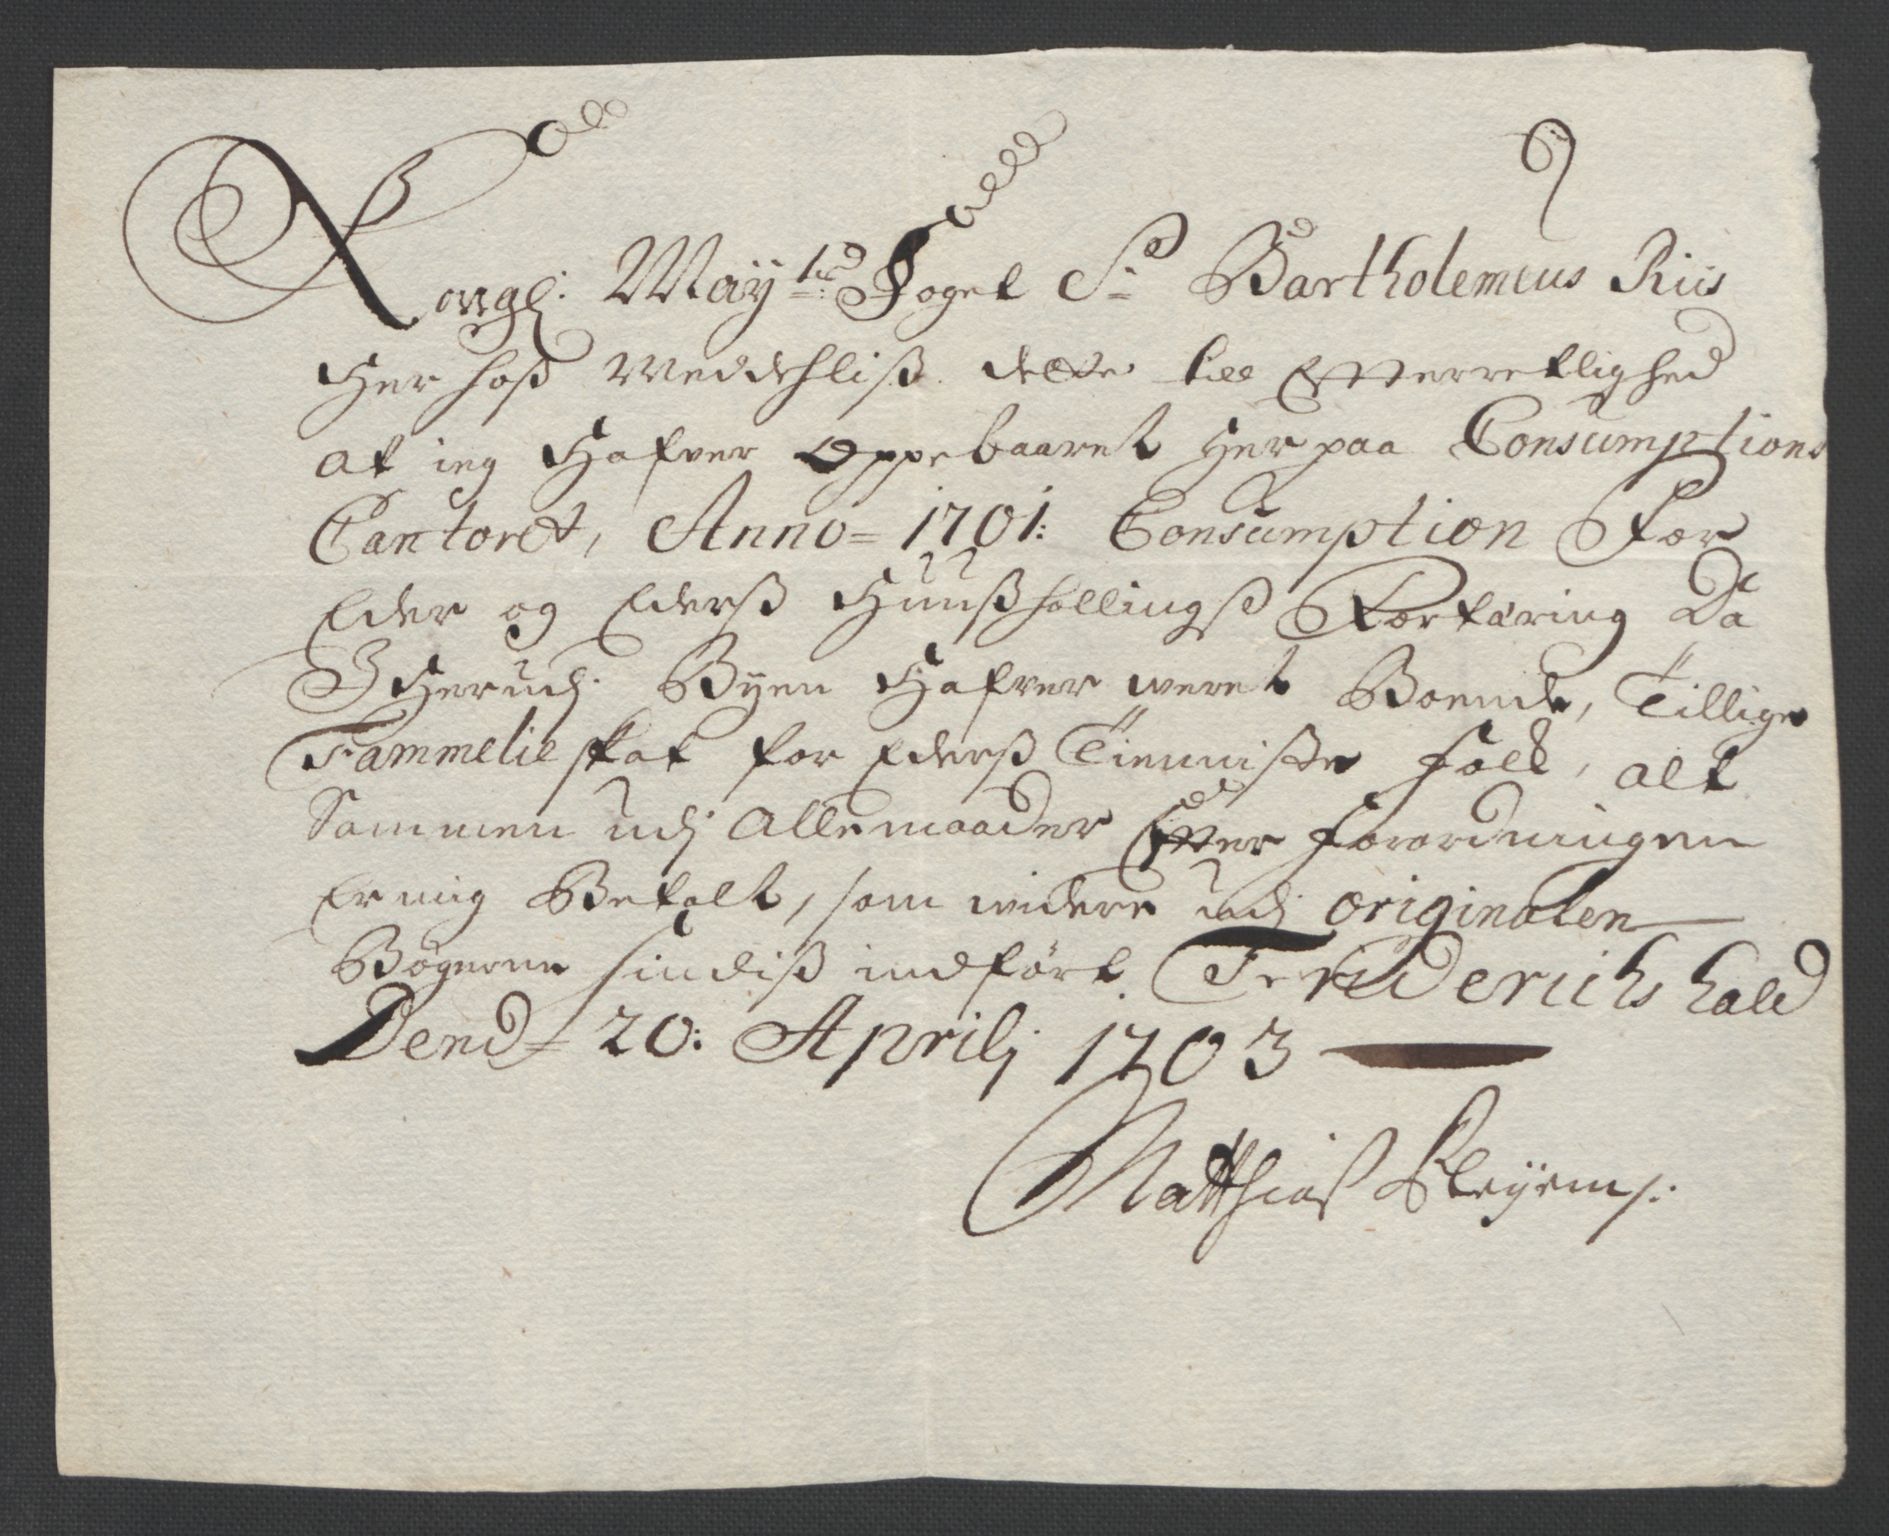 Kongl: May:ts Foget Sr Bartholemeus Riis
Her hoß Meddehliß dette till Effterretlighed
at ieg Hafver Oppebaaret Her paa Consumptions
Cantoret, Anno = 1701: Consumption For
Eder og Ederß Huußhollingß Fortæring Da
I Herudj Byen Hafver weret Boende, Tillige
Fammelie skat for Ederß Tienniste Folk, alt
Sammen udj Allemaader Effter Forordningen
Er mig Betalt, som widere udj originalen
Bögerne findiß indfört. Friderichshald
Dend = 20: Aprilj 1703
Matthiaß